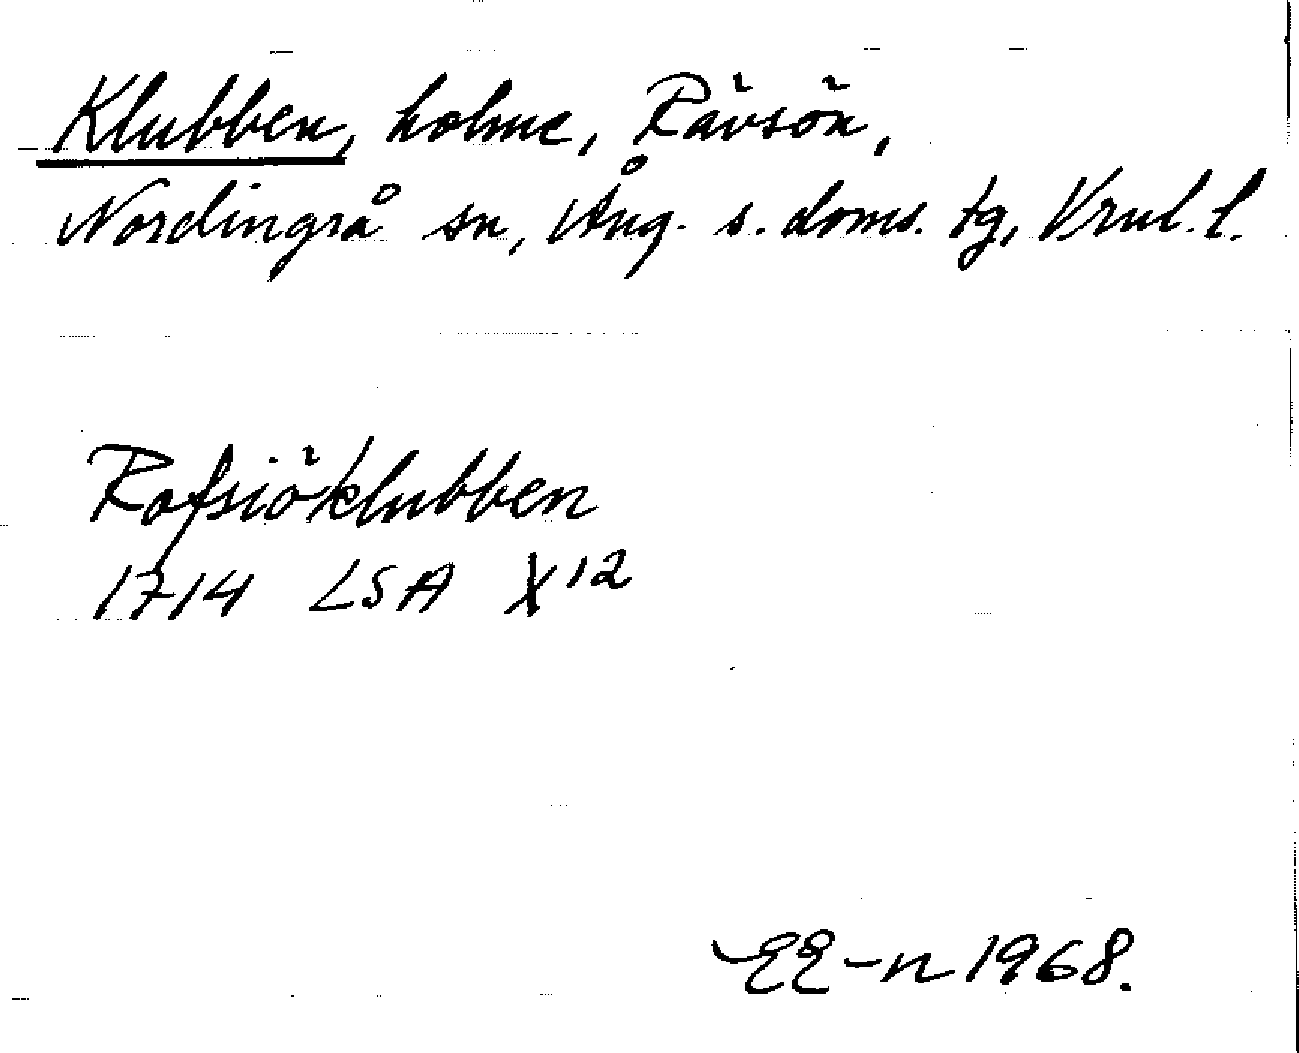 Klubben, holme, Rävsön,
Nordingrå sn, Ång. s. doms. tg, Vrnl. l.
Rafsiöklubben
1714 LSA X12
EE-n 1968.